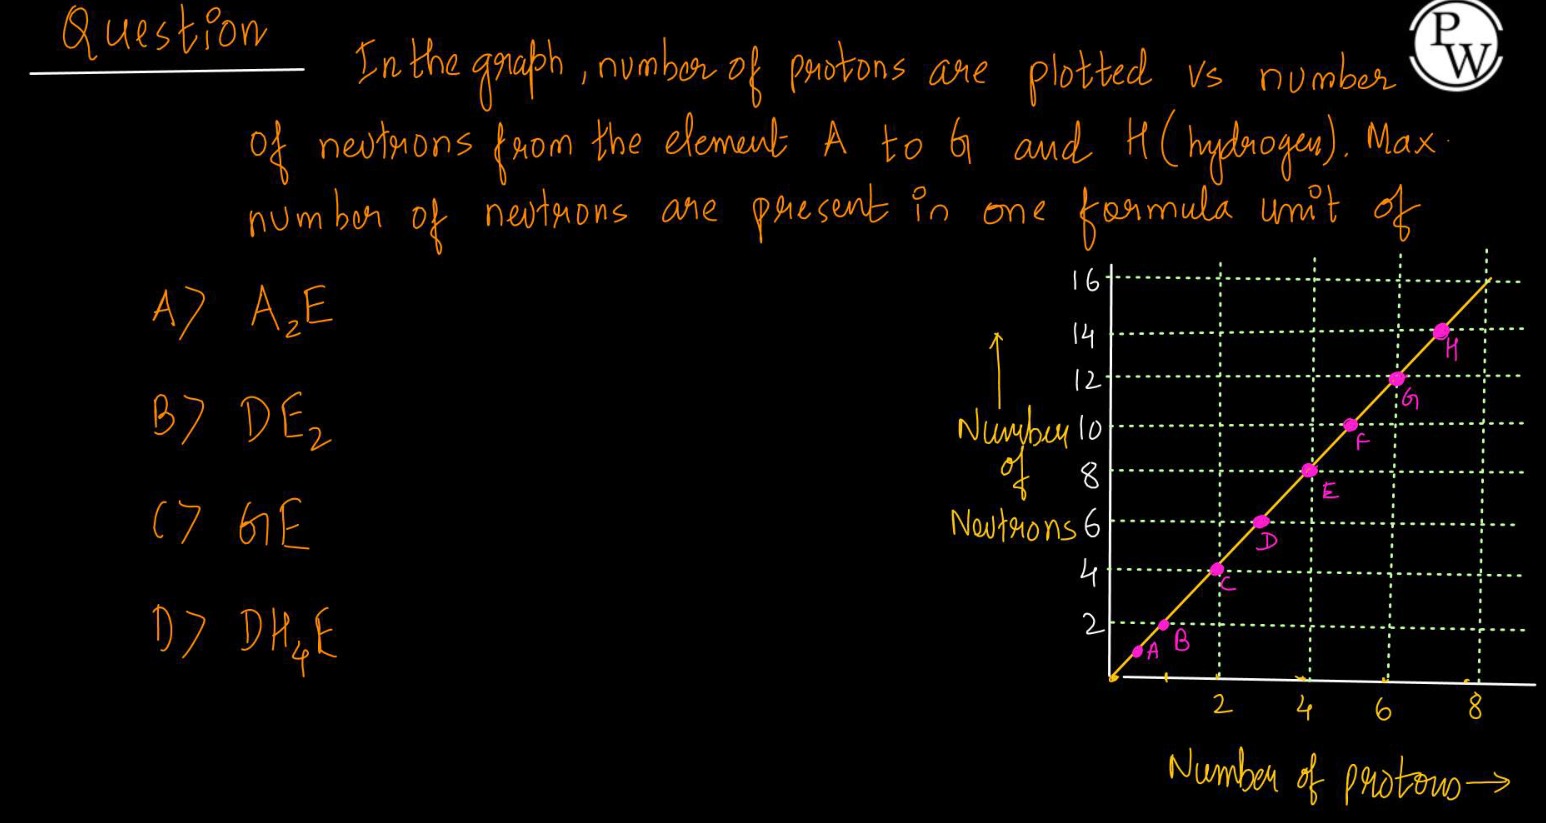 Question
PW
In the graph, number of protons are plotted vs number
of neutrons from the element A to G and H (hydrogen). Max.
number of neutrons are present in one formula unit of
A> A₂E
B> DE₂
C> GE
D> DH₄E
16
14
12
10
8
6
4
2
Number
of
Neutrons
H
G
F
E
D
C
B
A
2 4 6 8
Number of protons